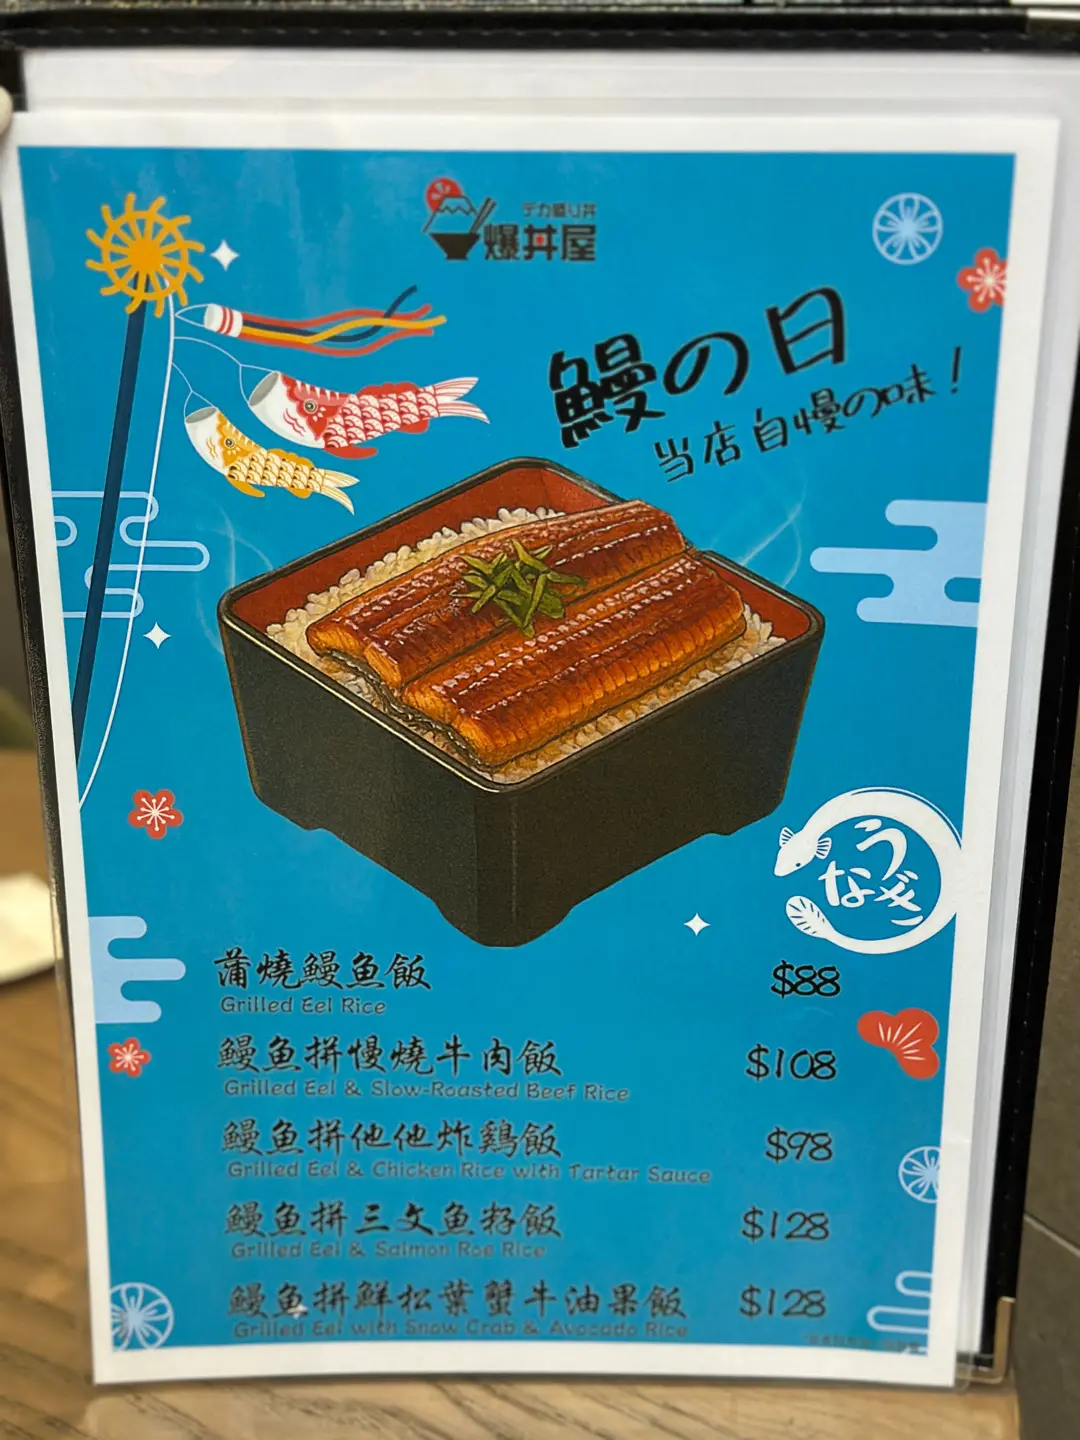 デカ盛り丼
爆丼屋
鰻の日
当店自慢の味！
うなぎ
蒲燒鰻魚飯 $88
Grilled Eel Rice
鰻魚拼慢燒牛肉飯 $108
Grilled Eel & Slow-Roasted Beef Rice
鰻魚拼他他炸鶏飯 $98
Grilled Eel & Chicken Rice with Tartar Sauce
鰻魚拼三文魚籽飯 $128
Grilled Eel & Salmon Roe Rice
鰻魚拼鮮松葉蟹牛油果飯 $128
Grilled Eel with Snow Crab & Avocado Rice